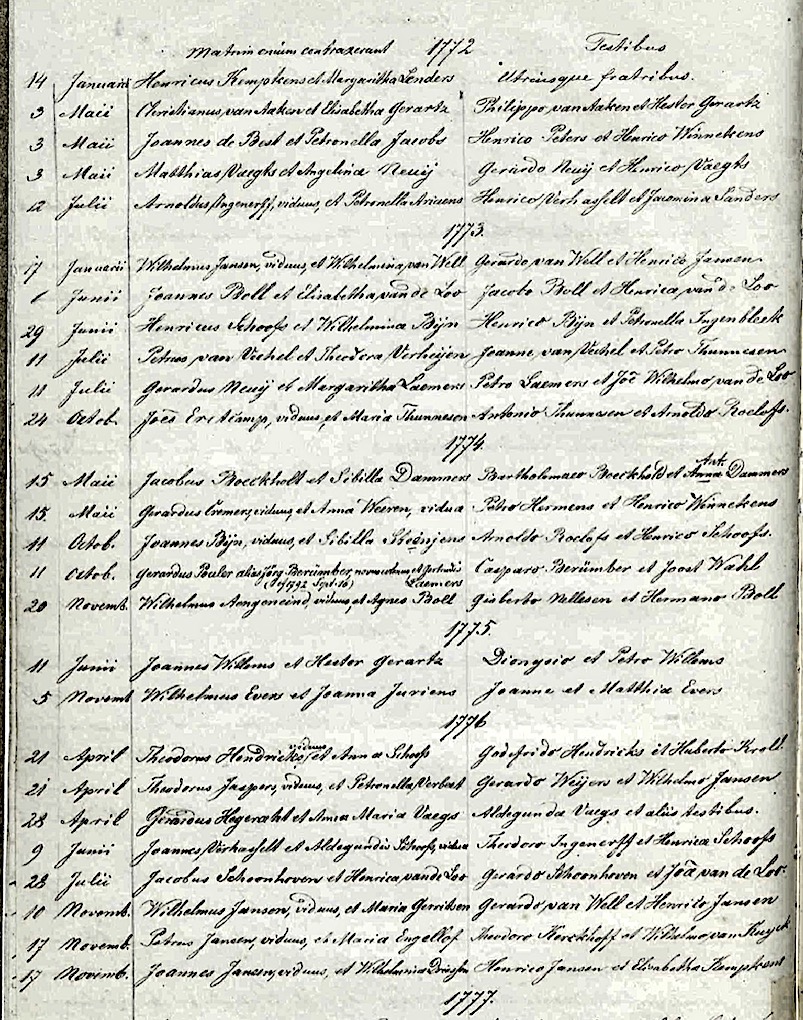 Matrimonium contraxerunt 1772 Testibus
14 Januarii Henricus Kempkens et Margaritha Lenders Utriusque fratribus.
3 Maii Christianus van Aaken et Elisabetha Gerartz Philippo van Aaken et Hester Gerartz
3 Maii Joannes de Best et Petronella Jacobs Henrico Peters et Henrico Winnekens
3 Maii Matthias Vaegts et Angelina Neuij Gerardo Neuij et Henrico Vaegts
12 Julii Arnoldus Ingenerff, viduus, et Petronella Ariaens Henrico Verhasselt et Jacomina Sanders
1773.
17 Januarii Wilhelmus Jansen, viduus, et Wilhelmina van Well Gerardo van Well et Henrico Jansen
Junii Joannes Boll et Elisabetha van de Loo Jacobo Boll et Henrica van de Loo
29 Junii Henricus Schoofs et Wilhelmina Bijn Henrico Bijn et Petronella Ingenbleek
11 Julii Petrus van Vechel et Theodora Verheijen Joanne van Vechel et Petro Thunnesen
11 Julii Gerardus Neuij et Margaritha Laemers Petro Laemers et Joē Wilhelmo van de Loo
24 Octob. Joēs Erckamp, viduus, et Maria Thunnesen Antonio Thunnesen et Arnolda Roelofs.
1774.
15 Maii Jacobus Boeckholt et Sibilla Dammers Bartholomaeo Boeckhold et Anna Ant. Dammers
15. Maii Gerardus Cremers, viduus, et Anna Weeren, vidua Petro Hermens et Henrico Winnekens
11 Octob. Joannes Bijn, viduus, et Sibilla Steenjens Arnoldo Roelofs et Henrico Schoofs.
11 Octob. Gerardus Pouler alias Jörg et Gertrudis Laemers Casparo Berümber et Joost Wahl
20 Novemb. Wilhelmus Aengeneind, viduus, et Agnes Boll Gisberto Nellesen et Hermano Boll
1775.
11 Junii Joannes Willems et Hester Gerartz Dionysio et Petro Willems
5 Novemb Wilhelmus Evers et Joanna Juriens Joanne et Matthia Evers
1776
21 April Theodorus Hendricks, viduus, et Anna Schoofs Godefrido Hendricks et Huberto Kroll
21 April Theodorus Jaspers, viduus, et Petronella Verbeet Gerardo Weijers et Wilhelmo Jansen
28 April Gerardus Hegeraht et Anna Maria Vaegs Aldegunda Vaegs et aliis testibus.
9 Junii Joannes Verhasselt et Aldegundis Schoofs, vidua Theodoro Ingenerff et Henrica Schoofs
28 Julii Jacobus Schoonhoven et Henrica van de Loo Gerardo Schoonhoven et Joā van de Loo.
10 Novemb. Wilhelmus Jansen, viduus, et Maria Gerritsen Gerardo van Well et Henrico Jansen
17 Novemb. Petrus Jansen, viduus, et Maria Engellof Theodoro Kerckhoff et Wilhelmo van Kuyck
17 Novemb. Joannes Jansen, viduus, et Wilhelmina Driesen Henrico Jansen et Elisabetha Kempkens
1777.